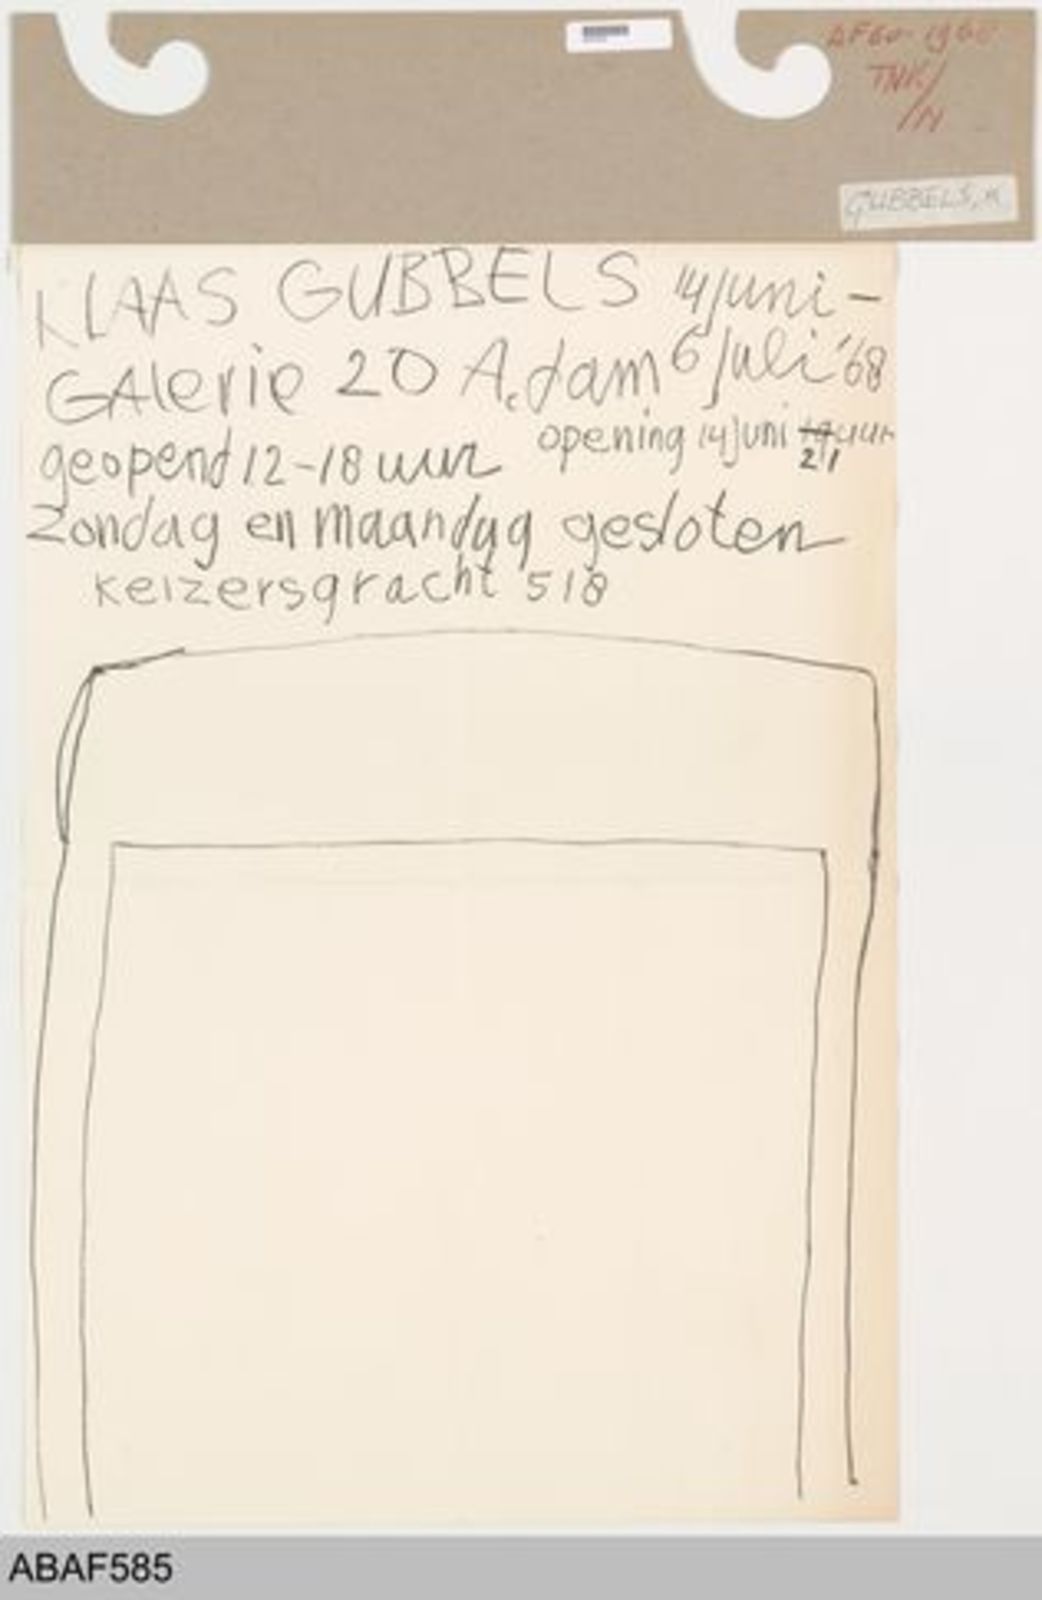 AF60-1960
TNK/
/N
GUBBELS, K
KLAAS GUBBELS 14 juni –
GAlerie 20 A.dam 6 juli '68
geopend 12–18 uur opening 14 juni 21 uur
Zondag en maandag gesloten
Keizersgracht 518
ABAF585